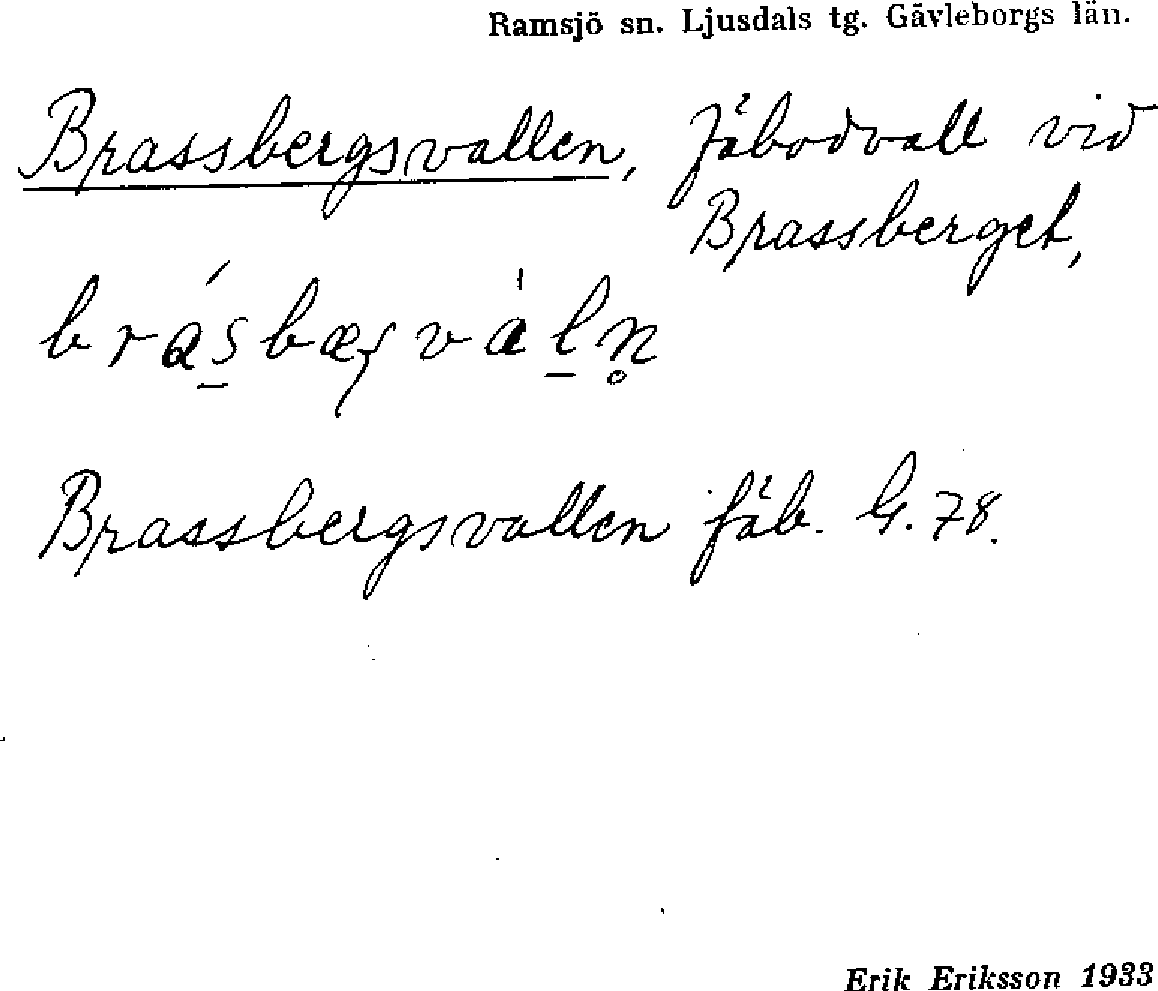 Ramsjö sn. Ljusdals tg. Gävleborgs län.
Brassbergsvallen, Fäbodvall vid
Brassberget,
Brassbergsvallen fäb. G. 78.
Erik Eriksson 1933